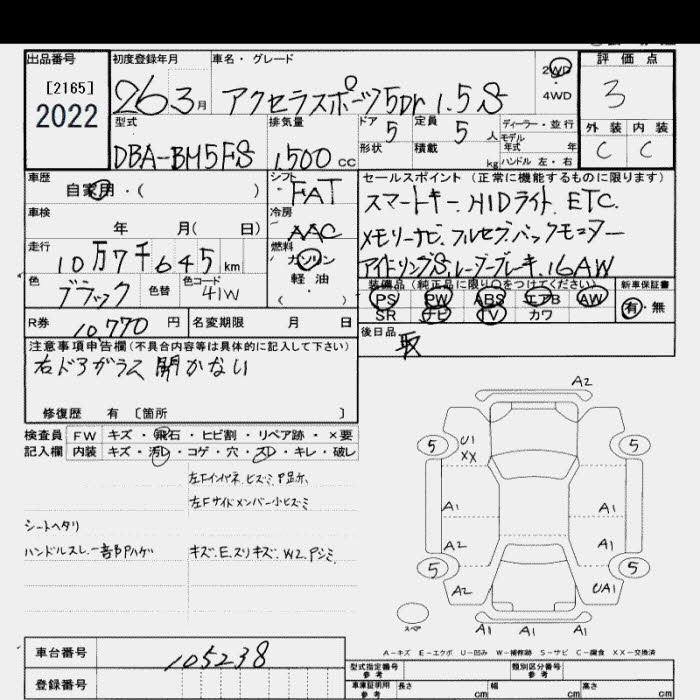 出品番号 初度登録年月 車名・グレード 評価点
[2165] 2022
26 3月 アクセラスポーツ5Dr 1.5S 2WD 4WD 3
型式 排気量 ドア 定員 ディーラー・並行 外装 内装
DBA-BM5FS 1,500 cc 5 5人 モデル年式 年 C C
形状 積載 kg ハンドル 左・右
車歴 自家用・( )
シフト FAT
セールスポイント (正常に機能するものに限ります)
スマートキー.HIDライト.ETC.
車検 年 月( 日)
冷房 AAC
メモリーナビ.フルセグ.バックモニター
走行 10万7千645km
燃料 ガソリン 軽油 ・( )
アイドリングS.レーダーブレーキ.16AW
色 ブラック 色替 色コード 41W
装備品(純正品に限り○をつけてください) 新車保証書
PS PW ABS エアB AW 有・無
SR ナビ TV カワ
R券 10,770円 名変期限 月 日
後日品 取
注意事項申告欄(不具合内容等は具体的に記入して下さい)
右ドアガラス 開かない
修復歴 有 〔箇所 〕
検査員 FW キズ・飛石・ヒビ割・リペア跡・×要
記入欄 内装 キズ・汚レ・コゲ・穴・スレ・キレ・破レ
左Fインパネ.ヒズミ.P足ケ.
左Fサイドメンバー小ヒズミ
シートヘタリ
ハンドルスレ.一部Pハゲ キズ.E.スリキズ.W2.Pシミ
A2
5 U1 XX 5
A1 A1
A2 A1
5 5
A2 UA1
スペア A1 A1 A1
A-キズ E-エクボ U-凹み W-補修跡 S-サビ C-腐食 XX-交換済
車台番号 105238
登録番号
型式指定番号 参考 類別区分番号 参考
車庫証明用 参考 長さ cm 幅 cm 高さ cm